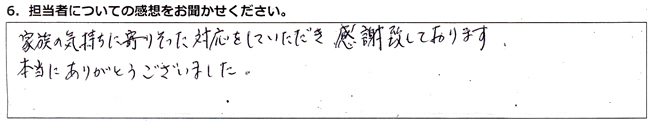 6. 担当者についての感想をお聞かせください。
家族の気持ちに寄りそった対応をしていただき 感謝致しております.
本当にありがとうございました。